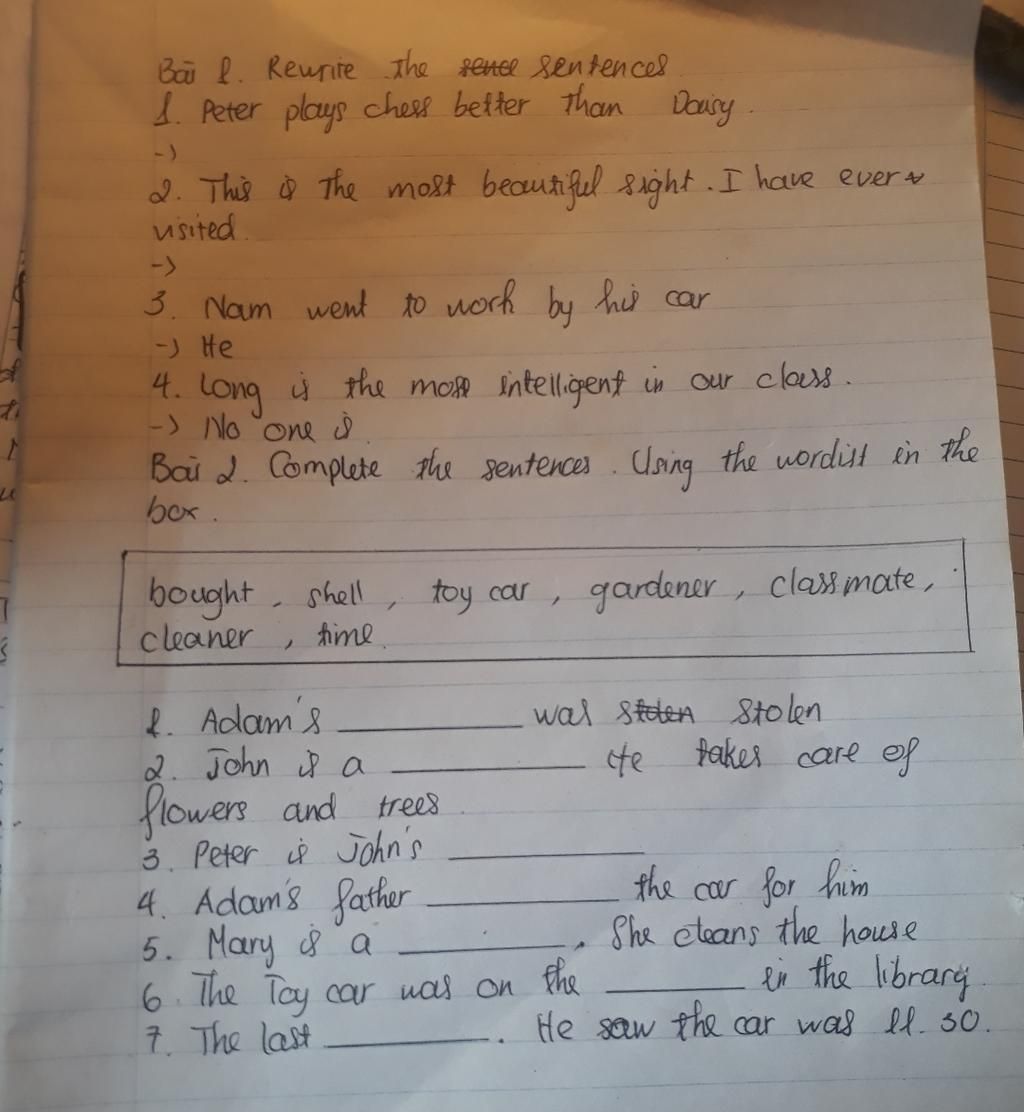 Bài 1. Rewrite the sence sentences
1. Peter plays chess better than Daisy.
->
2. This is the most beautiful sight. I have ever
visited.
->
3. Nam went to work by his car
-> He
4. Long is the most intelligent in our class.
-> No one is
Bài 2. Complete the sentences. Using the wordlist in the
box.
bought, shell, toy car, gardener, classmate,
cleaner, time.
1. Adam's __________ was stolen stolen
2. John is a __________ He takes care of
flowers and trees
3. Peter is John's __________
4. Adam's father __________ the car for him
5. Mary is a __________. She cleans the house
6. The Toy car was on the __________ in the library.
7. The last __________. He saw the car was 11.30.